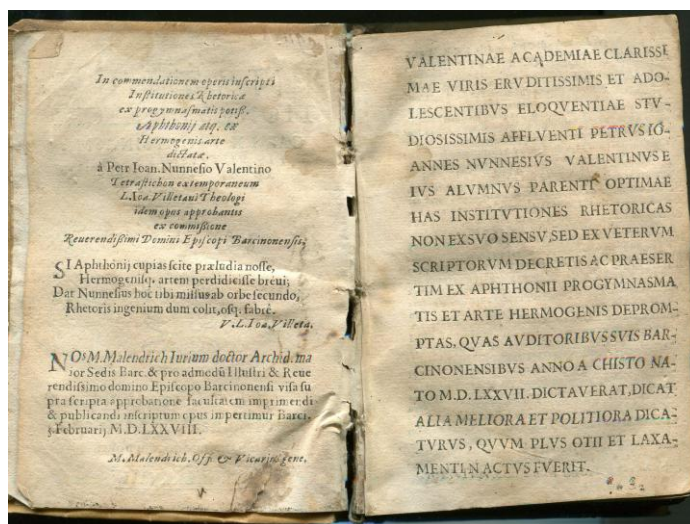 In commendationem operis inscripti
Institutiones Rhetoricæ
ex progymnasmatis potiss.
Aphthonij atq. ex
Hermogenis arte
dictatæ.
à Petr Ioan. Nunnesio Valentino
Tetrastichon extemporaneum
L. Ioa. Villetaui Theologi
idem opus approbantis
ex commissione
Reuerendissimi Domini Episcopi Barcinonensis,
SI Aphthonij cupias scite præludia nosse,
Hermogenisq. artem perdidicisse breui;
Dat Nunnesius hoc tibi missus ab orbe secundo,
Rhetoris ingenium dum colit, osq. fabrè.
V. L. Ioa, Villeta.
NOs M. Malendrich Iurium doctor Archid. ma
ior Sedis Barc. & pro admodū Illustri & Reue
rendissimo domino Episcopo Barcinonensi visa su
pra scripta approbatione facultatem imprimendi
& publicandi inscriptum opus impertimur Barci.
5. Februarij M.D.LXXVIII.
M. Malendrich. Off. & Vicarius gene.
VALENTINAE ACADEMIAE CLARISSI
MAE VIRIS ERVDITISSIMIS ET ADO-
LESCENTIBVS ELOQVENTIAE STV-
DIOSISSIMIS AFFLVENTI PETRVS IO-
ANNES NVNNESIVS VALENTINVS E
IVS ALVMNVS PARENTI OPTIMAE
HAS INSTITVTIONES RHETORICAS
NON EX SVO SENSV, SED EX VETERVM
SCRIPTORVM DECRETIS AC PRAESER
TIM EX APHTHONII PROGYMNASMA
TIS ET ARTE HERMOGENIS DEPROM-
PTAS, QVAS AVDITORIBVS SVIS BAR-
CINONENSIBVS ANNO A CHISTO NA-
TO M.D.LXXVII. DICTAVERAT, DICAT
ALIA MELIORA ET POLITIORA DICA-
TVRVS, QVVM PLVS OTII ET LAXA-
MENTI NACTVS FVERIT.